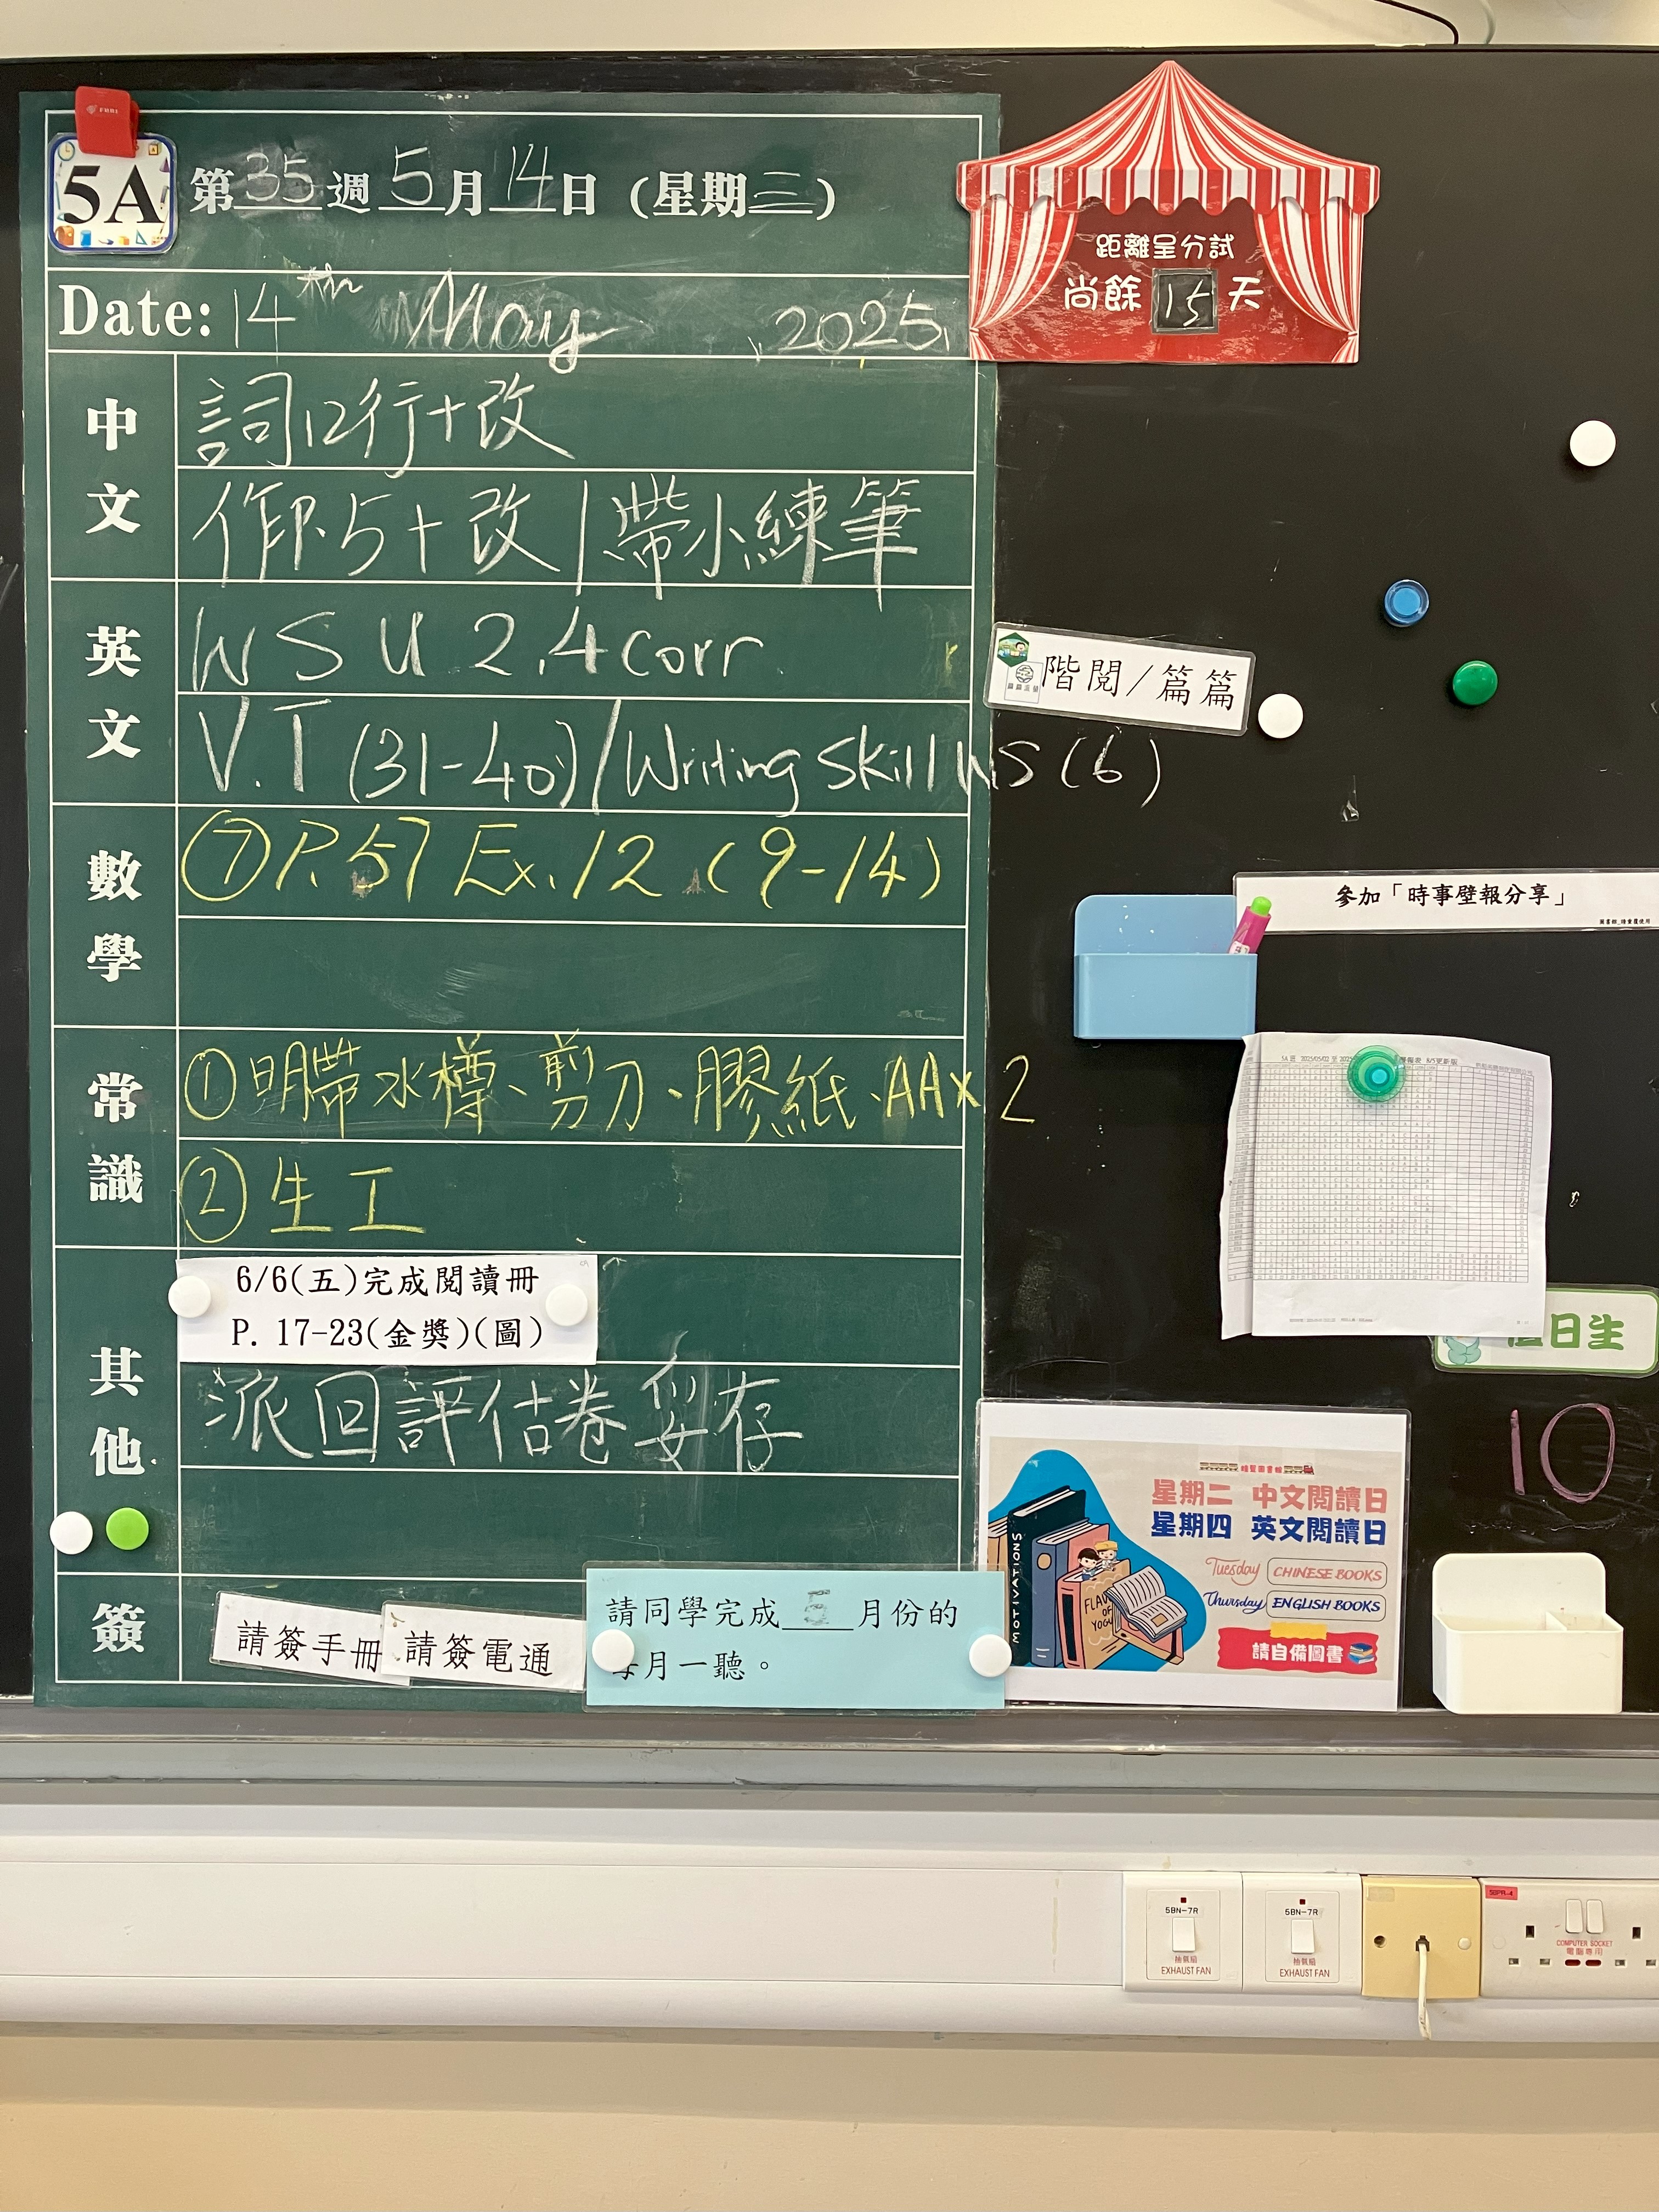 5A
第35週5月14日(星期三)
Date: 14th May 2025
距離呈分試
尚餘15天
中文
詞12行+改
作P.5+改/帶小練筆
英文
WS U2.4 corr.
V.T (31-40)/Writing skill WS(6)
階閱/篇篇
數學
⑦P.57 Ex.12 (9-14)
參加「時事壁報分享」
常識
①明帶水樽、剪刀、膠紙、AAx2
②生工
其他
6/6(五)完成閱讀冊
P. 17-23(金獎)(圖)
派回評估卷妥存
日生
10
簽
請簽手冊
請簽電通
請同學完成 月份的
每月一聽。
星期二 中文閱讀日
星期四 英文閱讀日
Tuesday CHINESE BOOKS
Thursday ENGLISH BOOKS
請自備圖書
MOTIVATIONS
5BN-7R
抽氣扇
EXHAUST FAN
5BN-7R
抽氣扇
EXHAUST FAN
COMPUTER SOCKET
電腦專用